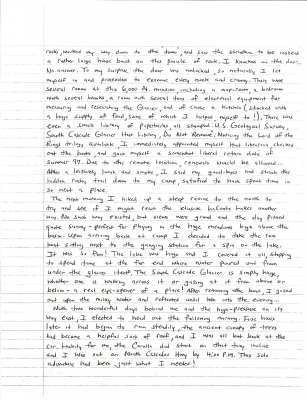 rocks, worked my way down to the "dome" and saw the structure to be instead
a rather large house built on this pinnacle of rock. I knocked on the door...
No answer. To my surprise, the door was unlocked, so naturally I let
myself in and proceeded to examine every nook and cranny. There were
several rooms at this 6,000 ft. mansion, including a map room, a bedroom
with several bunks, a room with several tons of electrical equipment for
measuring and researching the Glacier, and of course a kitchen (stocked with
a huge supply of food, some of which I helped myself to!). There was
even a small library of paperbacks all stamped: U.S. Geological Survey,
South Cascade Glacier Hut Library, Do Not Remove. Noticing the Lord of the
Rings trilogy available I immediately appointed myself Hut librarian, checked
out the books and gave myself a somewhat liberal return date of
Summer 97. Due to the remote location, renewals would be allowed...
After a leisurely lunch and smoke, I said my goodbyes and struck the
hidden rocky trail down to my camp, satisfied to have spent time in
so neat a place.
The next morning I hiked up a steep ravine to the north to
try and see if I might reach the elusive La Conte makes another
way. No such way existed, but views were grand and the day proved
quite sunny - perfect for playing in the huge meadows high above the
basin. Upon arriving back at camp, I decided to take the row
boat sitting next to the gauging station for a spin on the lake.
It was so fun! The lake was huge and I covered it all, stopping
to spend time at the far end where water poured out from
under the glacier itself. The South Cascade Glacier is simply huge,
whether one is walking across it or gazing at it from above or
below - a real eye-opener of a place! After returning the boat, I gazed
out upon the milky water and reflected until late into the evening...
With two wonderful days behind me and the high-pressure on its
way east, I elected to head out the following morning. Five hours
later it had begun to rain steadily, the ancient canopy of trees
had become a helpful sort of roof, and I was all but back at the
car. Luckily for me, the Corolla did start on that tiny incline
and I was out on North Cascades Hwy by 4:00 P.M. This solo
adventure had been just what I needed!